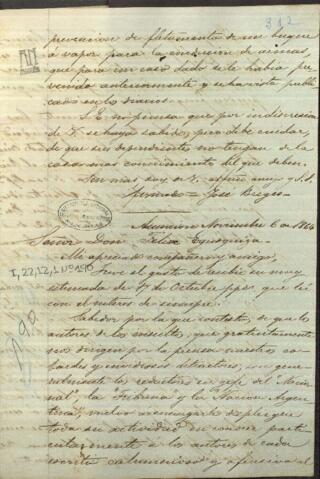 312
prevencion de fletamento de ese buque
á vapor para la conduccion de armas,
que para un caso dado se le habia pre
venido anteriormente y se ha visto publi
cado en los diarios.
S. E. no piensa que por indiscrecion
de V. se haya sabido, pero debe cuidar
de que sus dependientes no tengan de la
cosa mas conocimiento del que deben.
Sin mas soy de V. affmo amigo y S. S.
Firmado José Berges
Asuncion Noviembre 6 de 1864
Señor Don Felix Egusquiza
Mi apreciado compañero y amigo,
I, 22, 12, 1 Nº 190
Tuve el gusto de recibir su muy
estimada de 17 de Octubre ppdo, que leí
con el interes de siempre.
Sabedor por la que contesto, de que los
autores de los insultos que gratuitamente
nos dirigen por la prensa nuestros co
bardes y envidiosos detractores, son gene
ralmente los redactores en gefe del Nacio
nal, la Tribuna y la Nacion Argen
tina, vuelvo a encargarle despliegue
toda su actividad en conocer parti
cularmente á los autores de cada
escrito calumnioso y ofensivo al